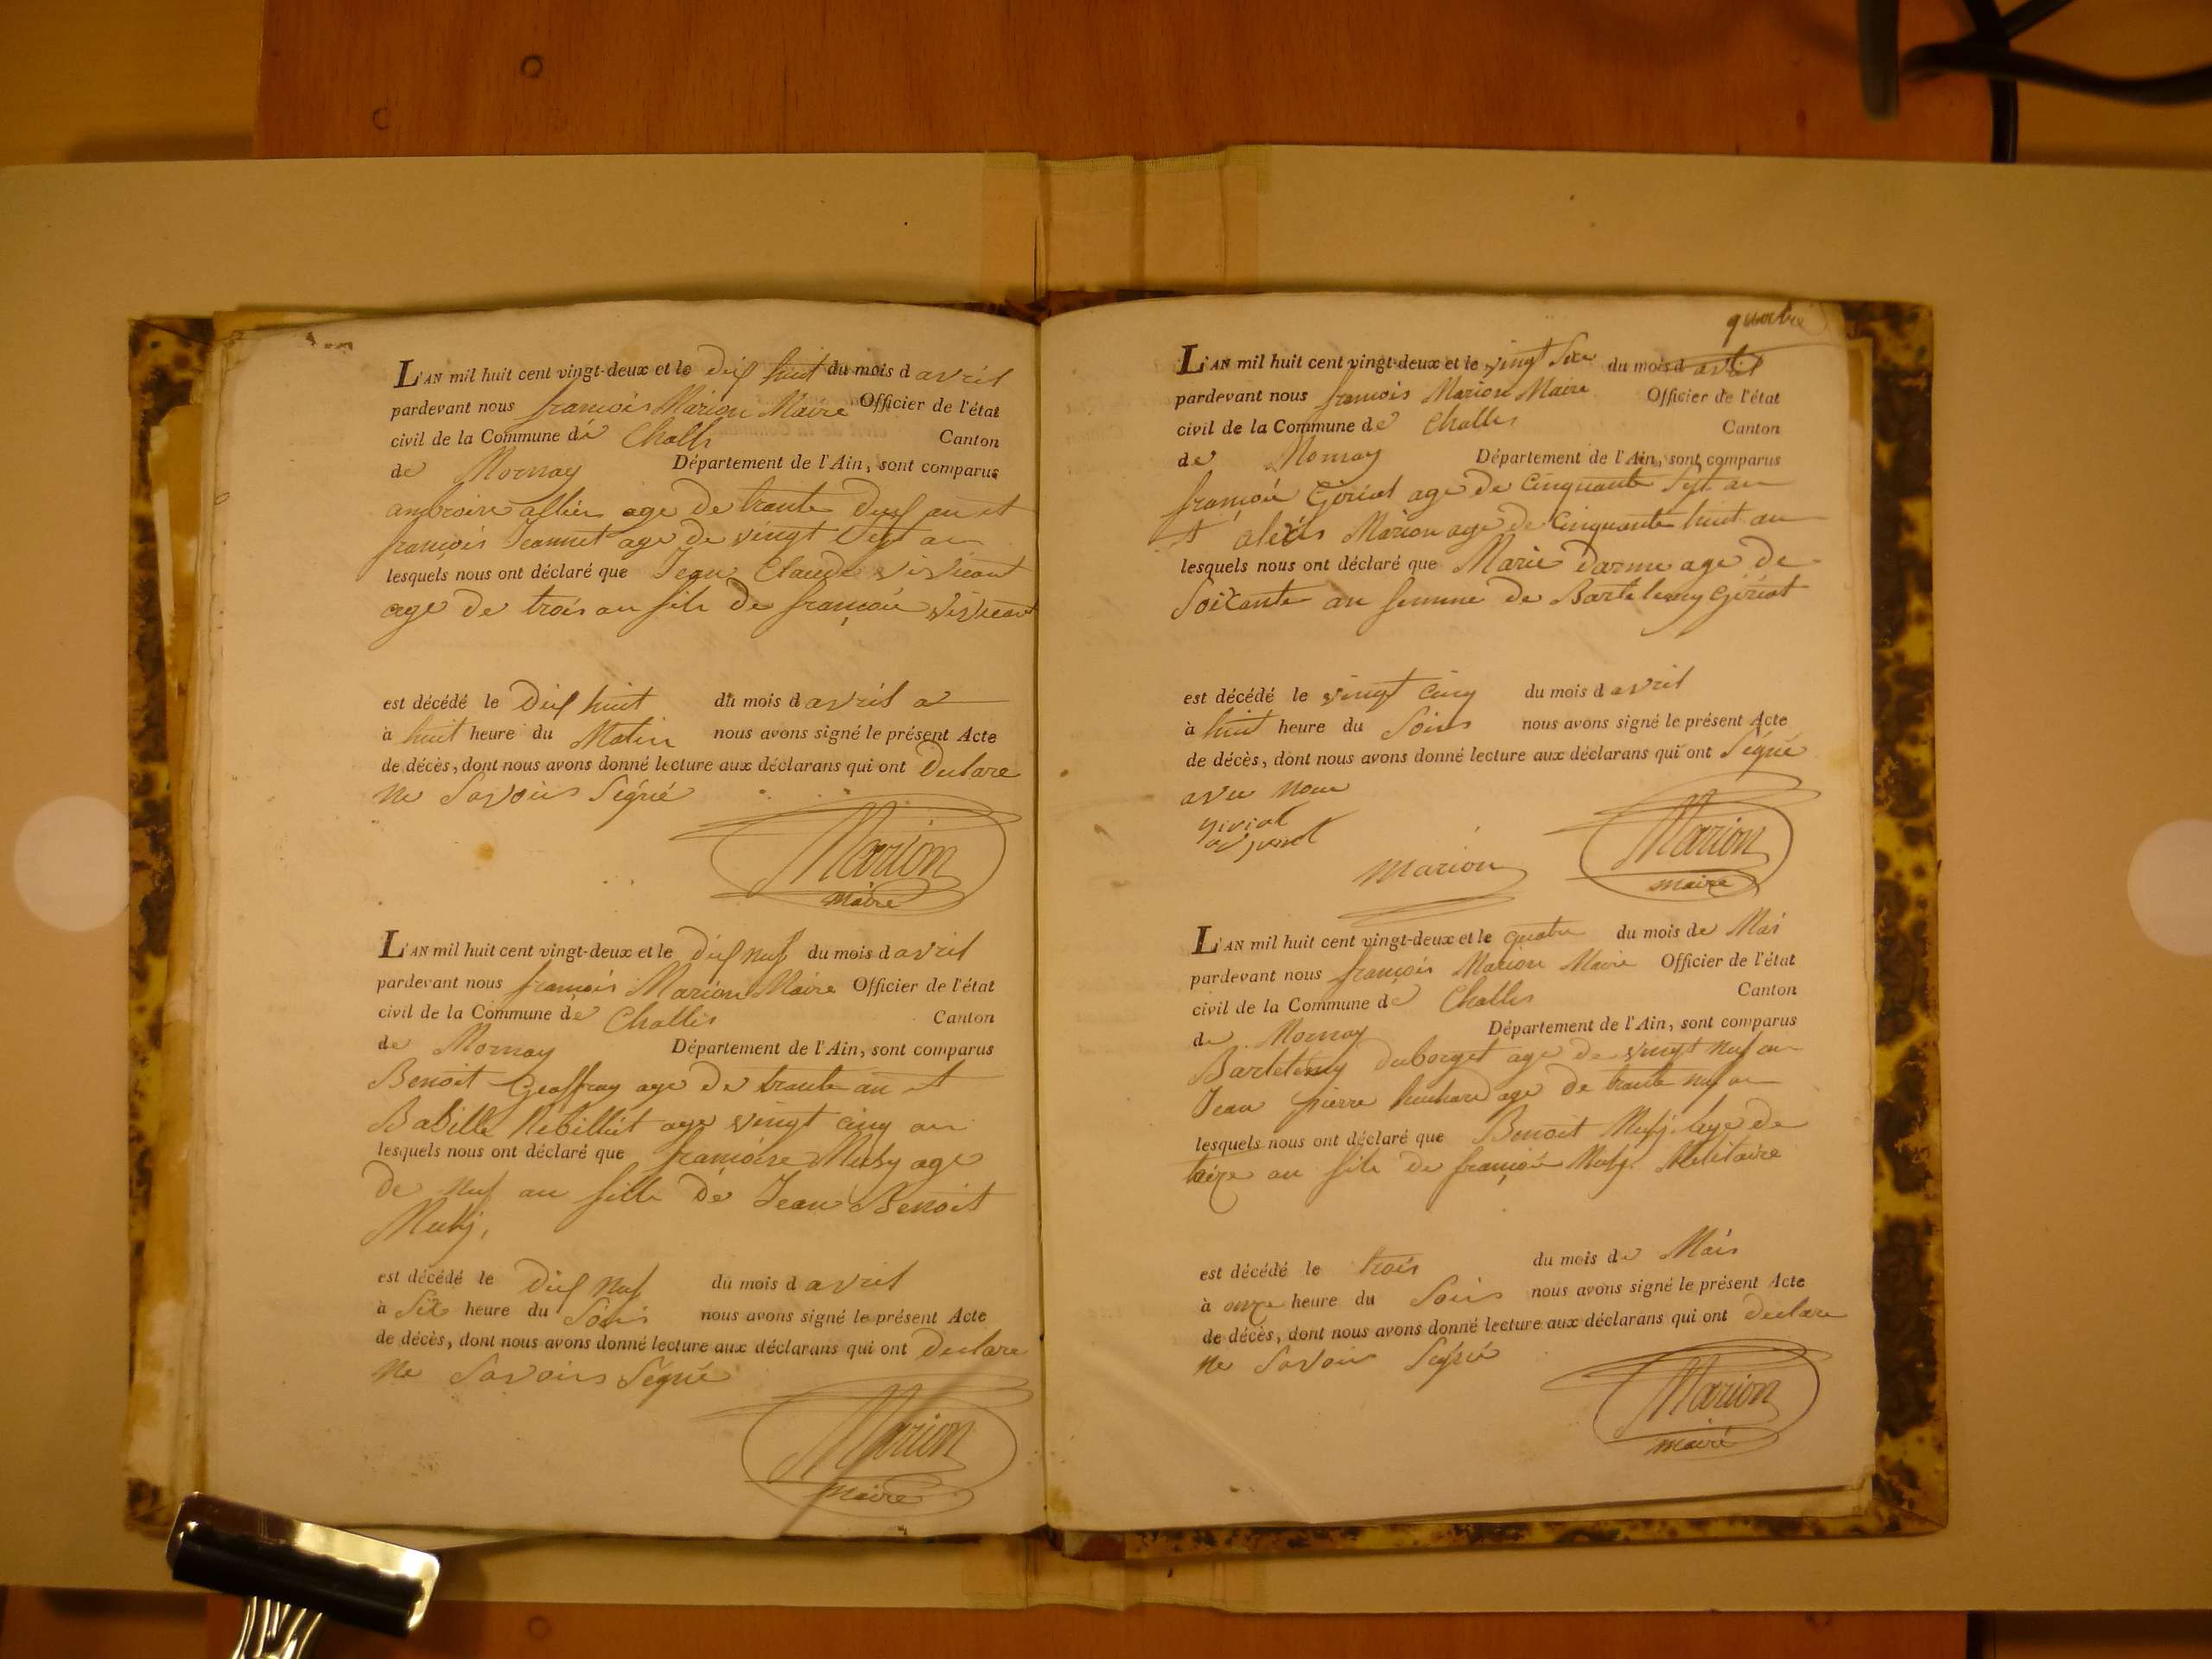 L'AN mil huit cent vingt-deux et le dix huit du mois d avril
pardevant nous françois Marion Maire Officier de l'état
civil de la Commune de Challes Canton
de Mornay Département de l'Ain, sont comparus
ambroise allier age de trante deux an et
françois Jeannet age de vingt Sept an
lesquels nous ont déclaré que Jean Claude vivicant
age de trois an fils de françois vivicant
est décédé le dix huit du mois d avril a
à huit heure du Matin nous avons signé le présent Acte
de décès, dont nous avons donné lecture aux déclarans qui ont Declare
ne Savoirs Signé
Marion
maire
L'AN mil huit cent vingt-deux et le dix nuf du mois d avril
pardevant nous françois Marion Maire Officier de l'état
civil de la Commune de Challes Canton
de Mornay Département de l'Ain, sont comparus
Benoit Geoffray age de trante an et
Babille Rebilliet age vingt cinq an
lesquels nous ont déclaré que françoise age
de nuf an fille de Jean Benoit
est décédé le dix nuf du mois d avril
à Six heure du Soirs nous avons signé le présent Acte
de décès, dont nous avons donné lecture aux déclarans qui ont Declare
Ne Savoirs Signé
Marion
maire
quatre
L'AN mil huit cent vingt-deux et le vingt Sixe du mois d avril
pardevant nous françois Marion Maire Officier de l'état
civil de la Commune de Challes Canton
de Mornay Département de l'Ain, sont comparus
françois Giriat age de Cinquante Sept an
et alexis Marion age de Cinquante huit an
lesquels nous ont déclaré que Marie darme age de
Soixante an femme de Bartelemy Giriat
est décédé le vingt cinq du mois d avril
à huit heure du Soirs nous avons signé le présent Acte
de décès, dont nous avons donné lecture aux déclarans qui ont Signé
avec nous
giriat
adjoint
marion
Marion
maire
L'AN mil huit cent vingt-deux et le quatre du mois de Mai
pardevant nous françois Marion Maire Officier de l'état
civil de la Commune de Challes Canton
de Mornay Département de l'Ain, sont comparus
Bartelemy duborget age de vingt nuf an
Jean pierre age de trante nuf an
lesquels nous ont déclaré que Benoit age de
an fils de françois Militaire
est décédé le trois du mois de Mais
à onze heure du Soirs nous avons signé le présent Acte
de décès, dont nous avons donné lecture aux déclarans qui ont Declare
ne Savoir Signé
Marion
maire